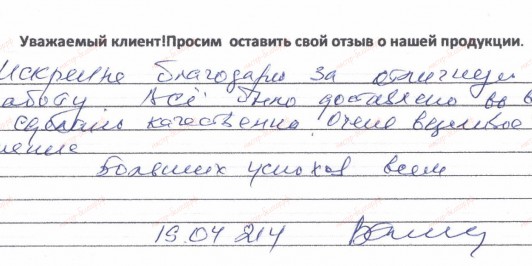 Уважаемый клиент!Просим оставить свой отзыв о нашей продукции.
Искренне благодарю за отличную
аботу. Всё было доставлено во в
сделано качественно. Очень вежливое
ление
Больших успехов всем
19.04 214